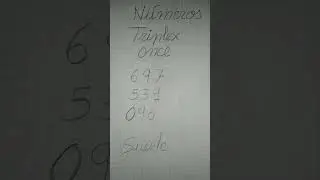 Números
Triplex
once
697
537
090
Suerte